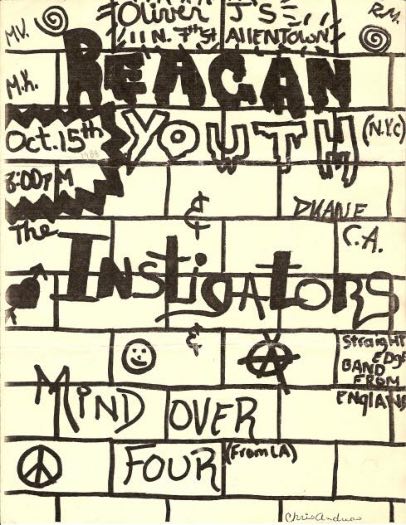 Oliver J'S
R.M.
MV.
11 N. 7th St Allentown
REAGAN
M.K.
YOUTH (N.Y.C)
Oct. 15th
1988
8:00PM
& DUANE
The C.A.
INSTIGATORS
&
StraighT
EDGE
BAND
FROM
ENGLAND
MIND OVER
FOUR (From LA)
Chris Andreas